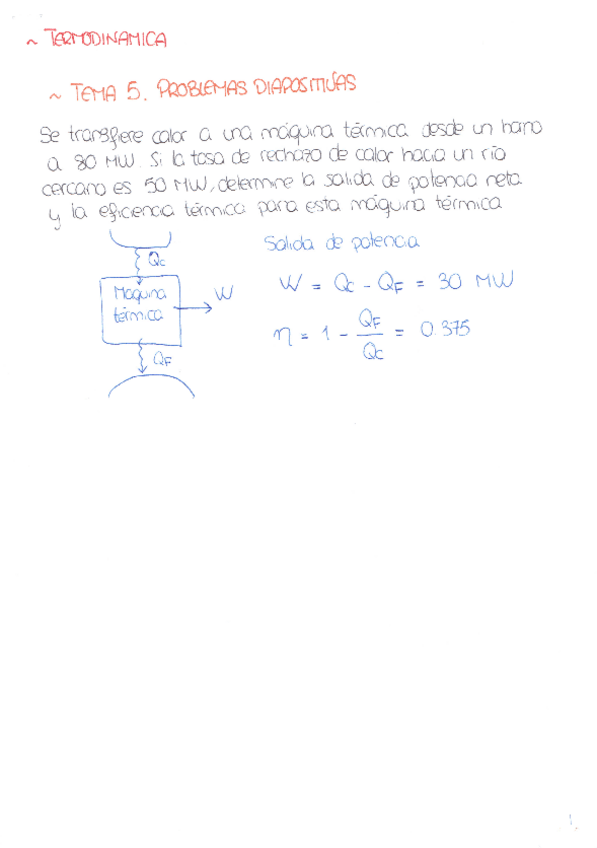 ~ TERMODINAMICA
~ TEMA 5. PROBLEMAS DIAPOSITIVAS
Se transfiere calor a una máquina térmica desde un horno
a 80 MW. Si la tasa de rechazo de calor hacia un río
cercano es 50 MW, determine la salida de potencia neta
y la eficiencia térmica para esta máquina térmica
Salida de potencia
Qc
W = Qc - QF = 30 MW
Maquina
térmica
W
η = 1 - QF/Qc = 0.375
QF
1